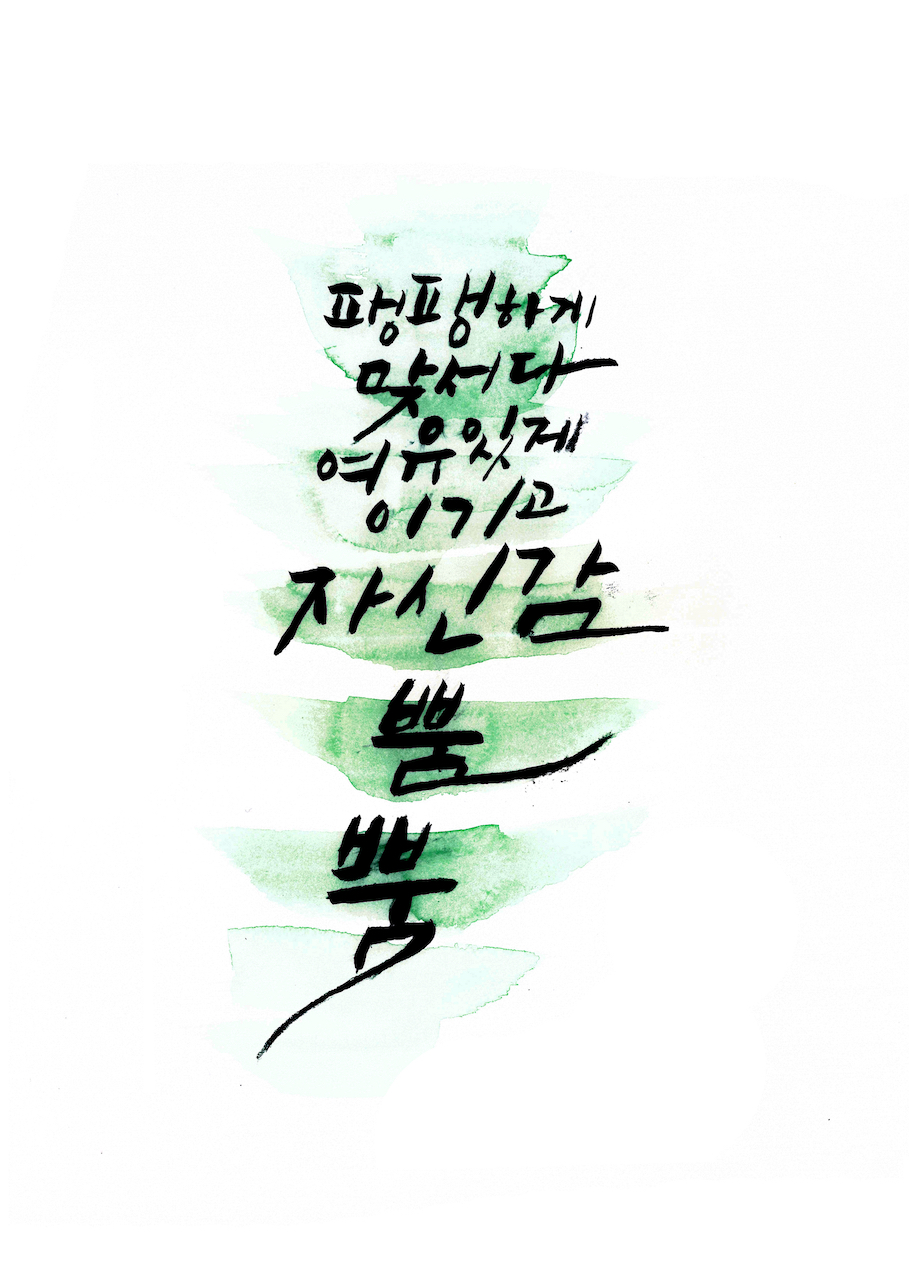 팽팽하게
맞서다
여유있게
이기고
자신감
뿜
뿜